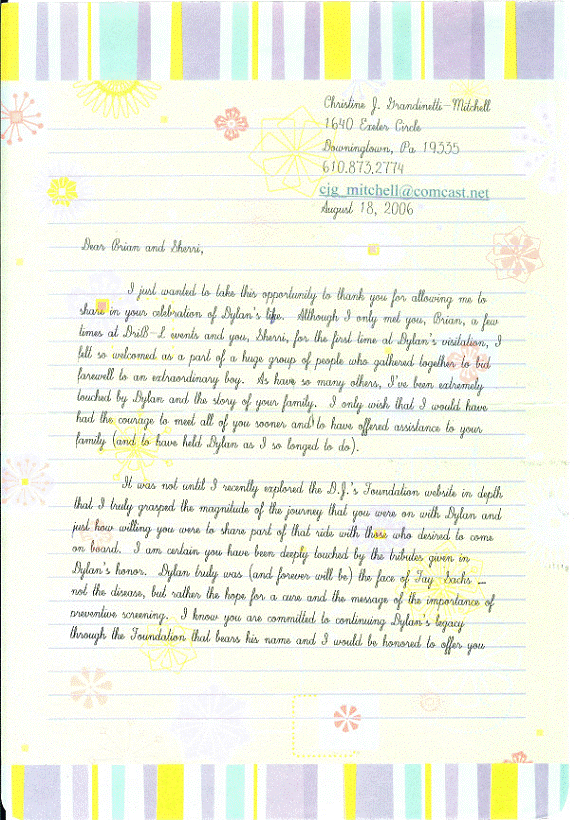 Christine J. Grandinetti-Mitchell
1640 Exeter Circle
Downingtown, Pa 19335
610.873.2774
cjg_mitchell@comcast.net
August 18, 2006
Dear Brian and Sherri,
I just wanted to take this opportunity to thank you for allowing me to
share in your celebration of Dylan's life. Although I only met you, Brian, a few
times at DriB-L events and you, Sherri, for the first time at Dylan's visitation, I
felt so welcomed as a part of a huge group of people who gathered together to bid
farewell to an extraordinary boy. As have so many others, I've been extremely
touched by Dylan and the story of your family. I only wish that I would have
had the courage to meet all of you sooner and to have offered assistance to your
family (and to have held Dylan as I so longed to do).
It was not until I recently explored the D.J.'s Foundation website in depth
that I truly grasped the magnitude of the journey that you were on with Dylan and
just how willing you were to share part of that ride with those who desired to come
on board. I am certain you have been deeply touched by the tributes given in
Dylan's honor. Dylan truly was (and forever will be) the face of Tay Sachs –
not the disease, but rather the hope for a cure and the message of the importance of
preventive screening. I know you are committed to continuing Dylan's legacy
through the Foundation that bears his name and I would be honored to offer you